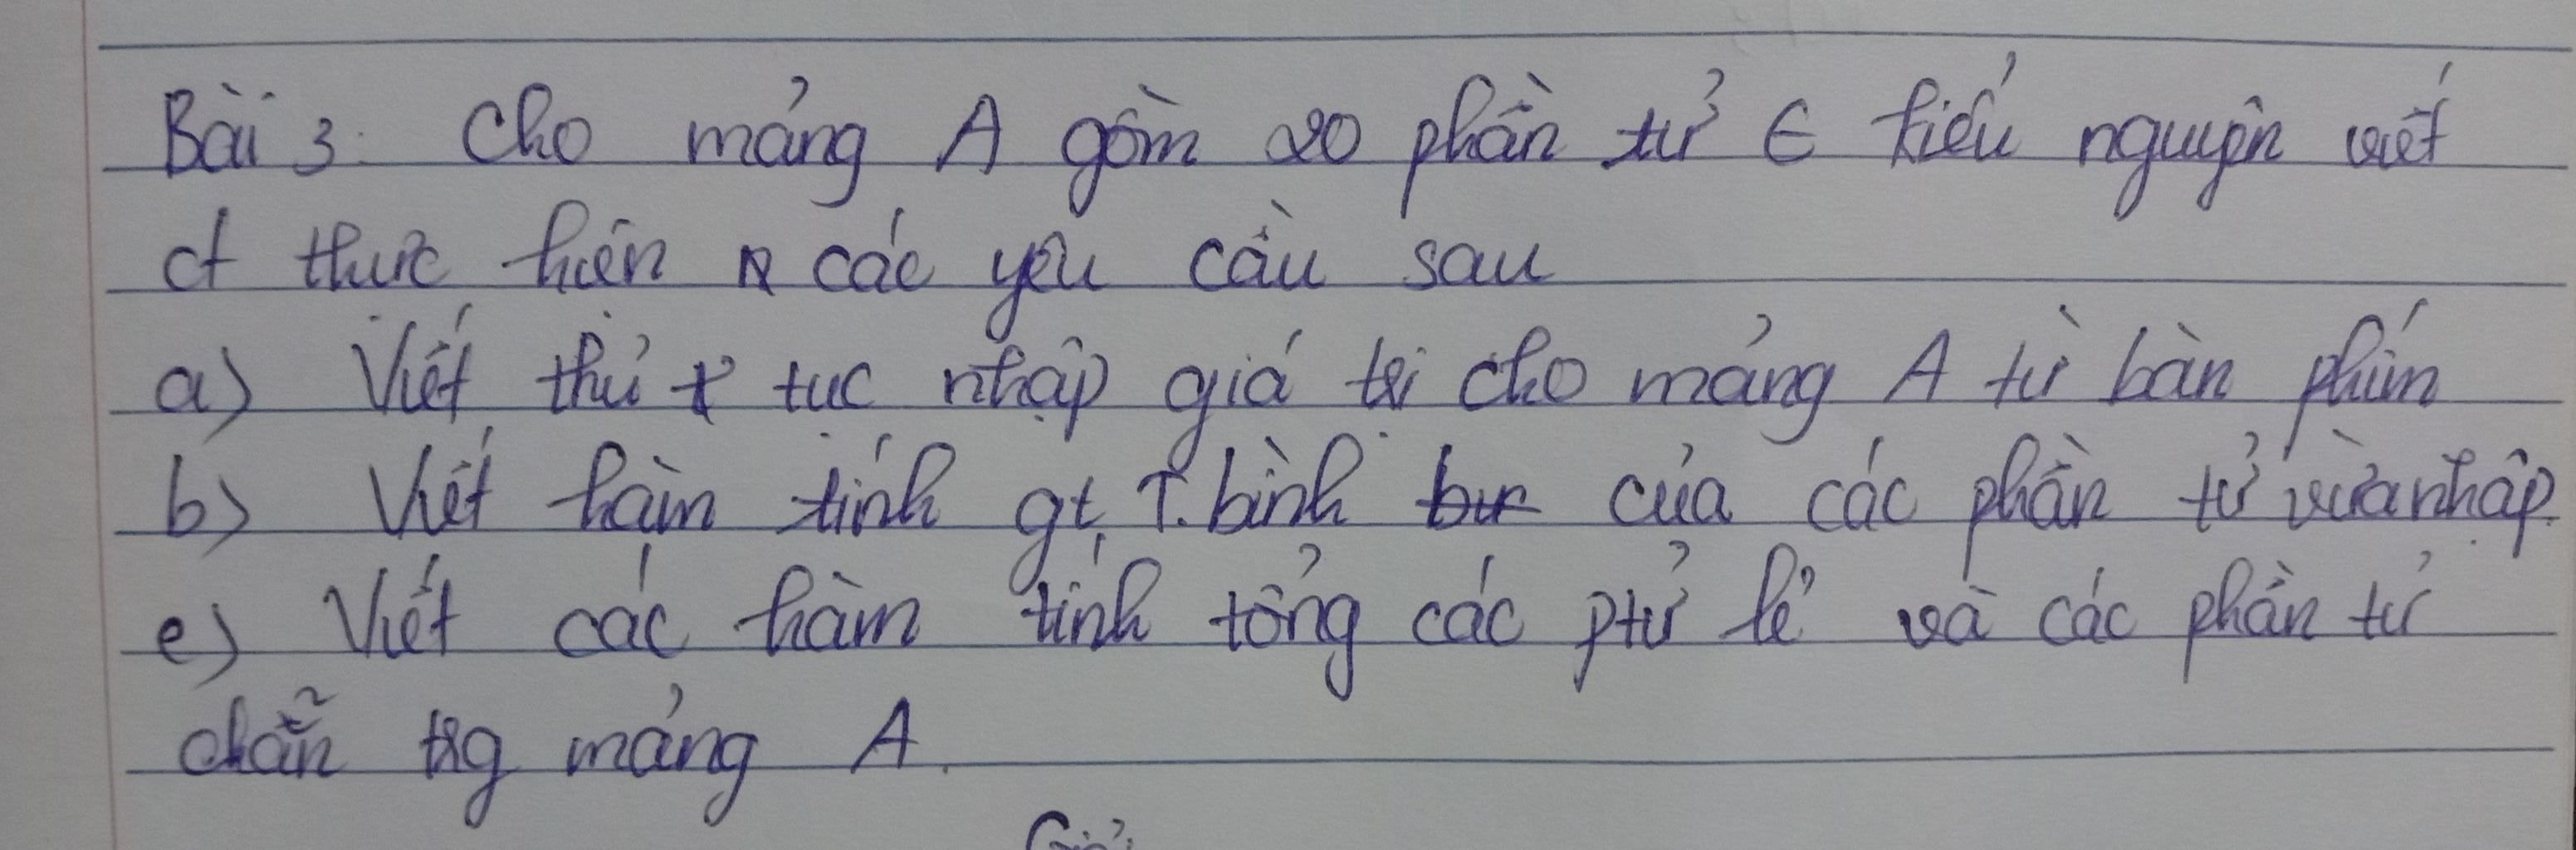 Bài 3: Cho mảng A gồm 20 phần tử ∈ kiểu nguyên viết
ct thực hiện các yêu cầu sau
a) Viết thủ tục nhập giá trị cho mảng A từ bàn phím
b) Viết hàm tính gt T.bình của các phần tử vừa nhập.
c) Viết các hàm tính tổng các ptử lẻ và các phần tử
chẵn trg mảng A.
Giải